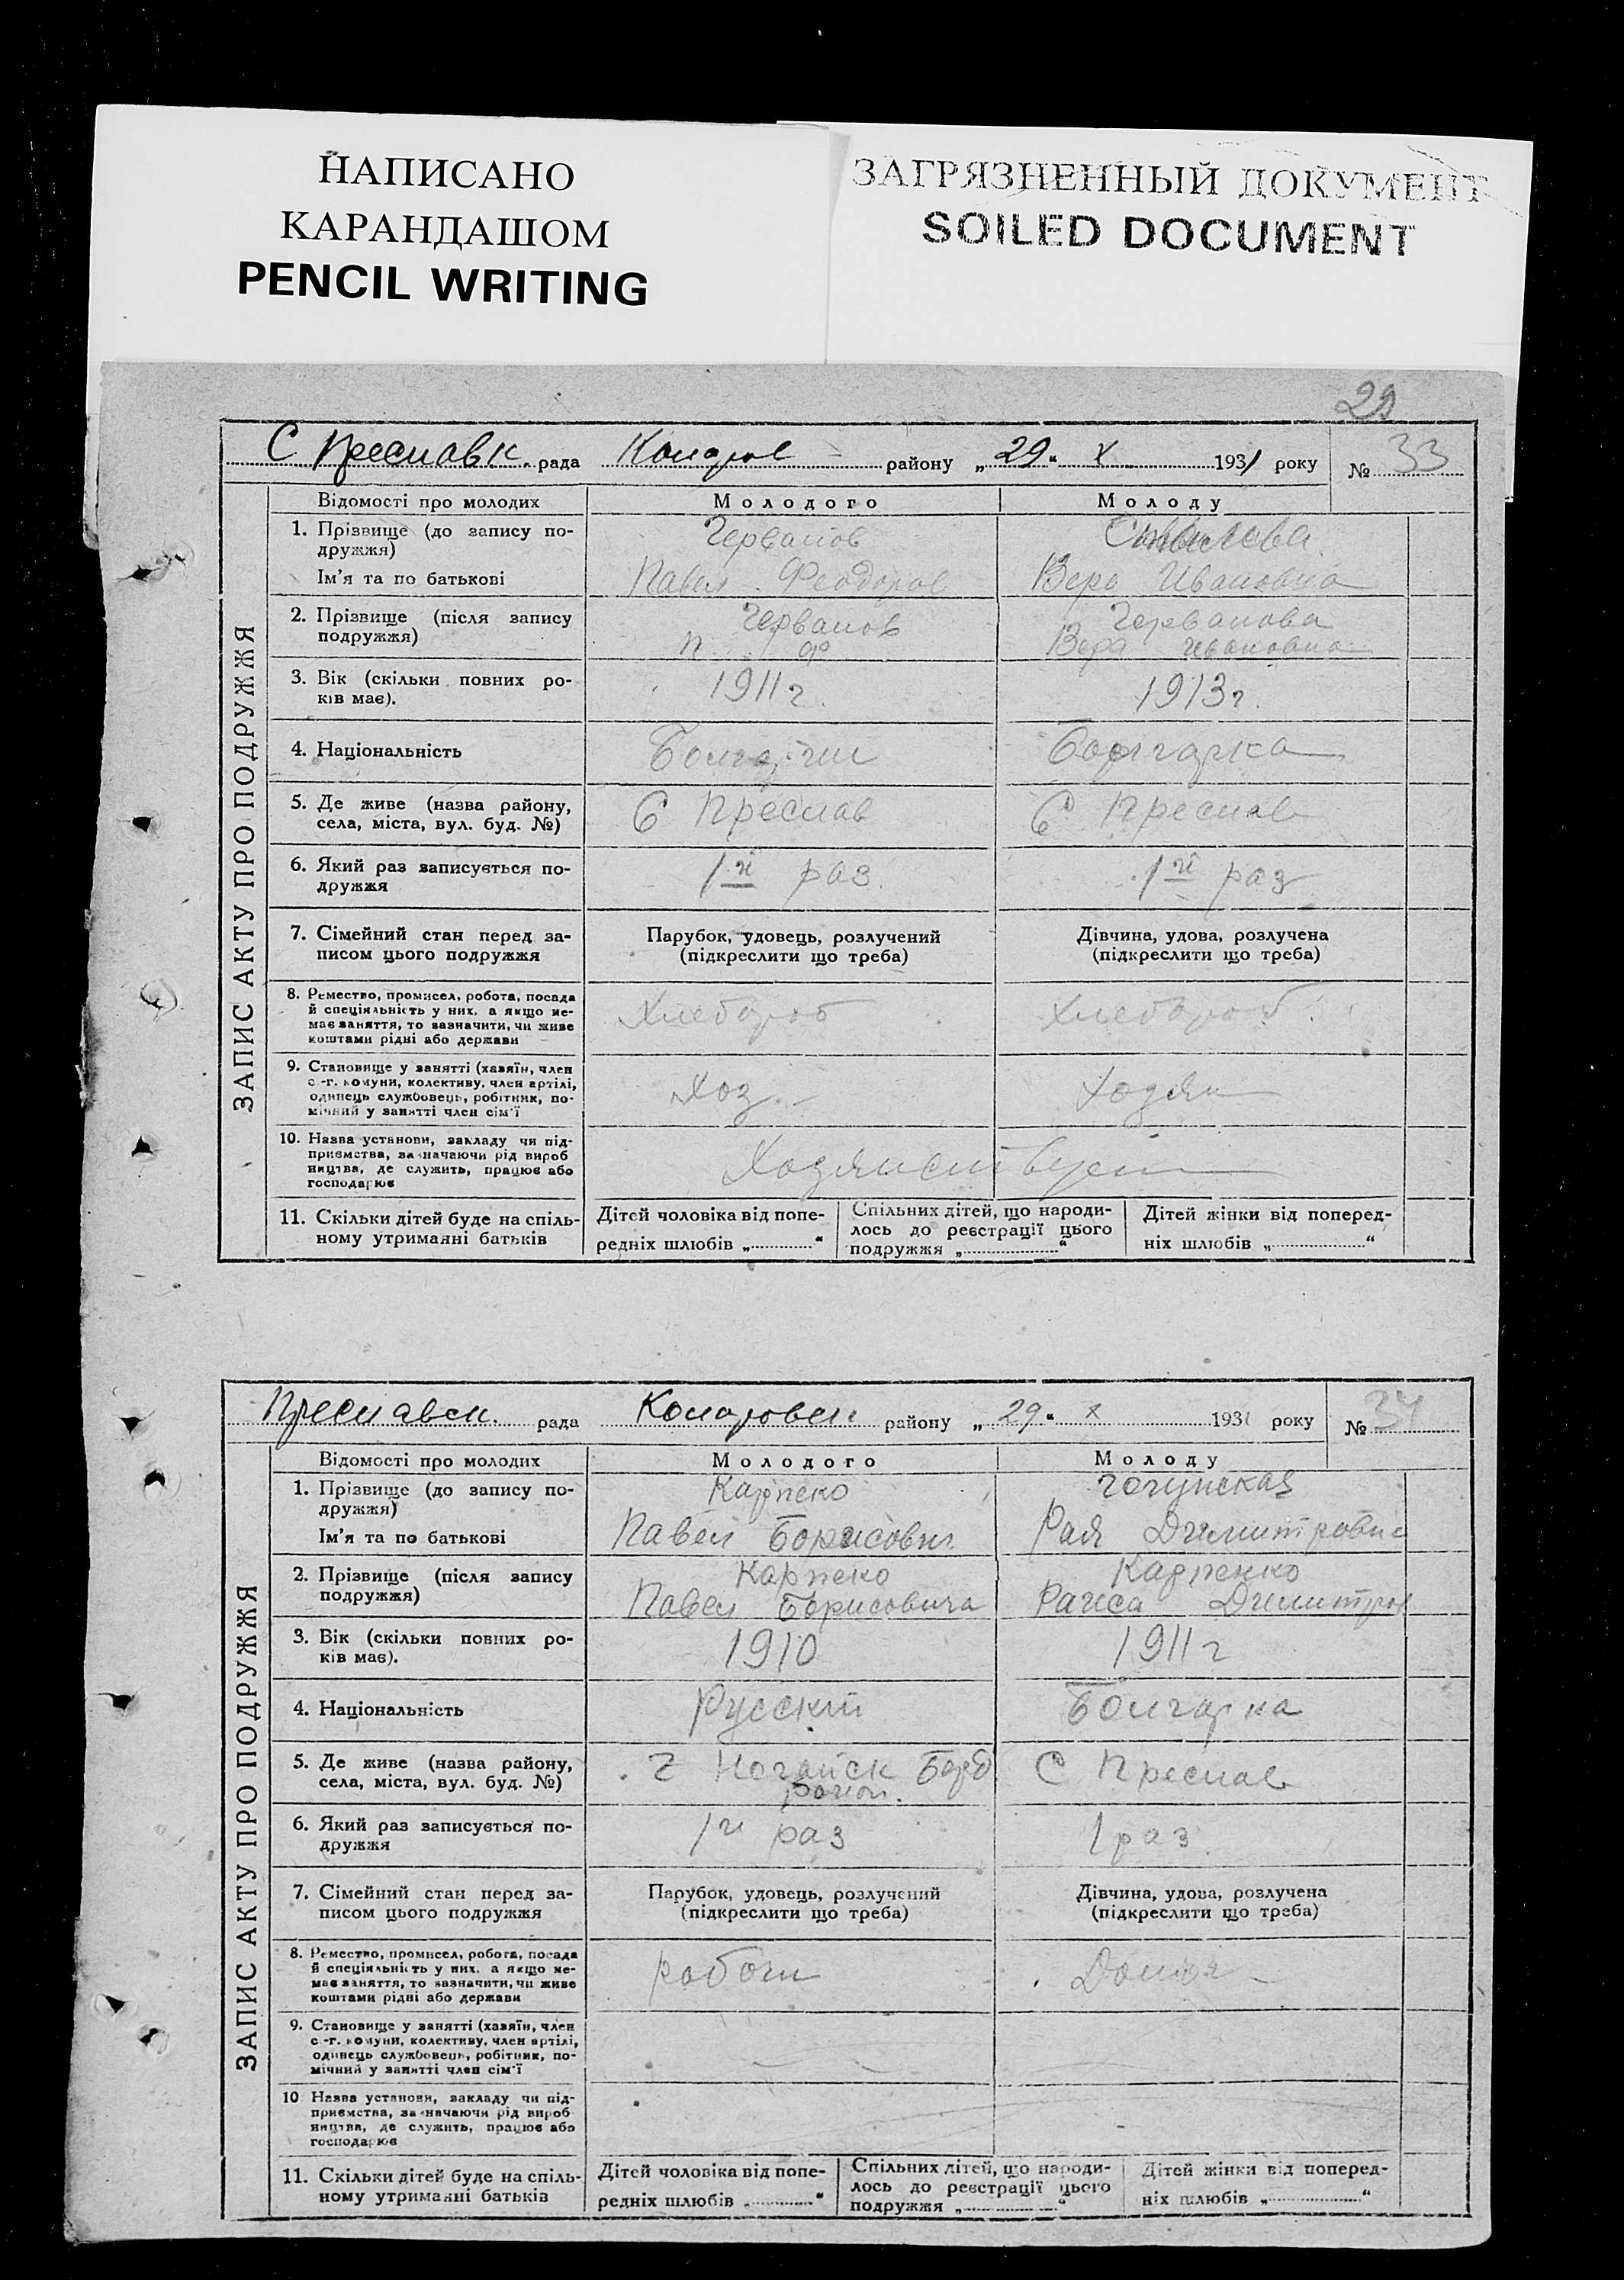 НАПИСАНО
КАРАНДАШОМ
PENCIL WRITING
ЗАГРЯЗНЕННЫЙ ДОКУМЕНТ
SOILED DOCUMENT
29
С Преславк. рада Коларов району „29“ X 1931 року № 33
ЗАПИС АКТУ ПРО ПОДРУЖЖЯ
Відомості про молодих Молодого Молоду
1. Прізвище (до запису по-
дружжя) Черванов
Ім'я та по батькові Павел Феодоров Вера Ивановна
2. Прізвище (після запису Черванов Черванова
подружжя) П Ф Вера Ивановна
3. Вік (скільки повних ро- 1911 г. 1913 г.
ків має).
4. Національність Болгарин Болгарка
5. Де живе (назва району, С Преслав С Преслав
села, міста, вул. буд. №)
6. Який раз записується по- 1й раз. 1й раз
дружжя
7. Сімейний стан перед за- Парубок, удовець, розлучений Дівчина, удова, розлучена
писом цього подружжя (підкреслити що треба) (підкреслити що треба)
8. Ремество, промисел, робота, посада Хлебороб Хлебороб
й спеціяльність у них, а якщо не-
має заняття, то зазначити, чи живе
коштами рідні або держави
9. Становище у занятті (хазяїн, член Хоз.
с.-г. комуни, колективу, член артілі,
одинець службовець, робітник, по-
мічний у занятті член сім'ї
10. Назва установи, закладу чи під- Хозяйствует
приємства, зазначаючи рід вироб
ництва, де служить, працює або
господарює
11. Скільки дітей буде на спіль- Дітей чоловіка від попе- Спільних дітей, що народи- Дітей жінки від поперед-
ному утриманні батьків редніх шлюбів „ “ лось до реєстрації цього ніх шлюбів „ “
подружжя „ “
Преславск. рада Коларовск району „29“ X 1931 року № 34
ЗАПИС АКТУ ПРО ПОДРУЖЖЯ
Відомості про молодих Молодого Молоду
1. Прізвище (до запису по- Карпеко
дружжя)
Ім'я та по батькові Павел Борисович Рая Димитровна
2. Прізвище (після запису Карпеко Карпенко
подружжя) Павел Борисовича Раиса Димитров
3. Вік (скільки повних ро- 1910 1911 г
ків має).
4. Національність Русский Болгарка
5. Де живе (назва району, г Ногайск Берд С Преслав
села, міста, вул. буд. №) район.
6. Який раз записується по- 1й раз 1 раз
дружжя
7. Сімейний стан перед за- Парубок, удовець, розлучений Дівчина, удова, розлучена
писом цього подружжя (підкреслити що треба) (підкреслити що треба)
8. Ремество, промисел, робота, посада рабочи
й спеціяльність у них, а якщо не-
має заняття, то зазначити, чи живе
коштами рідні або держави
9. Становище у занятті (хазяїн, член
с.-г. комуни, колективу, член артілі,
одинець службовець, робітник, по-
мічний у занятті член сім'ї
10 Назва установи, закладу чи під-
приємства, зазначаючи рід вироб
ництва, де служить, працює або
господарює
11. Скільки дітей буде на спіль- Дітей чоловіка від попе- Спільних дітей, що народи- Дітей жінки від поперед-
ному утриманні батьків редніх шлюбів „ “ лось до реєстрації цього ніх шлюбів „ “
подружжя „ “